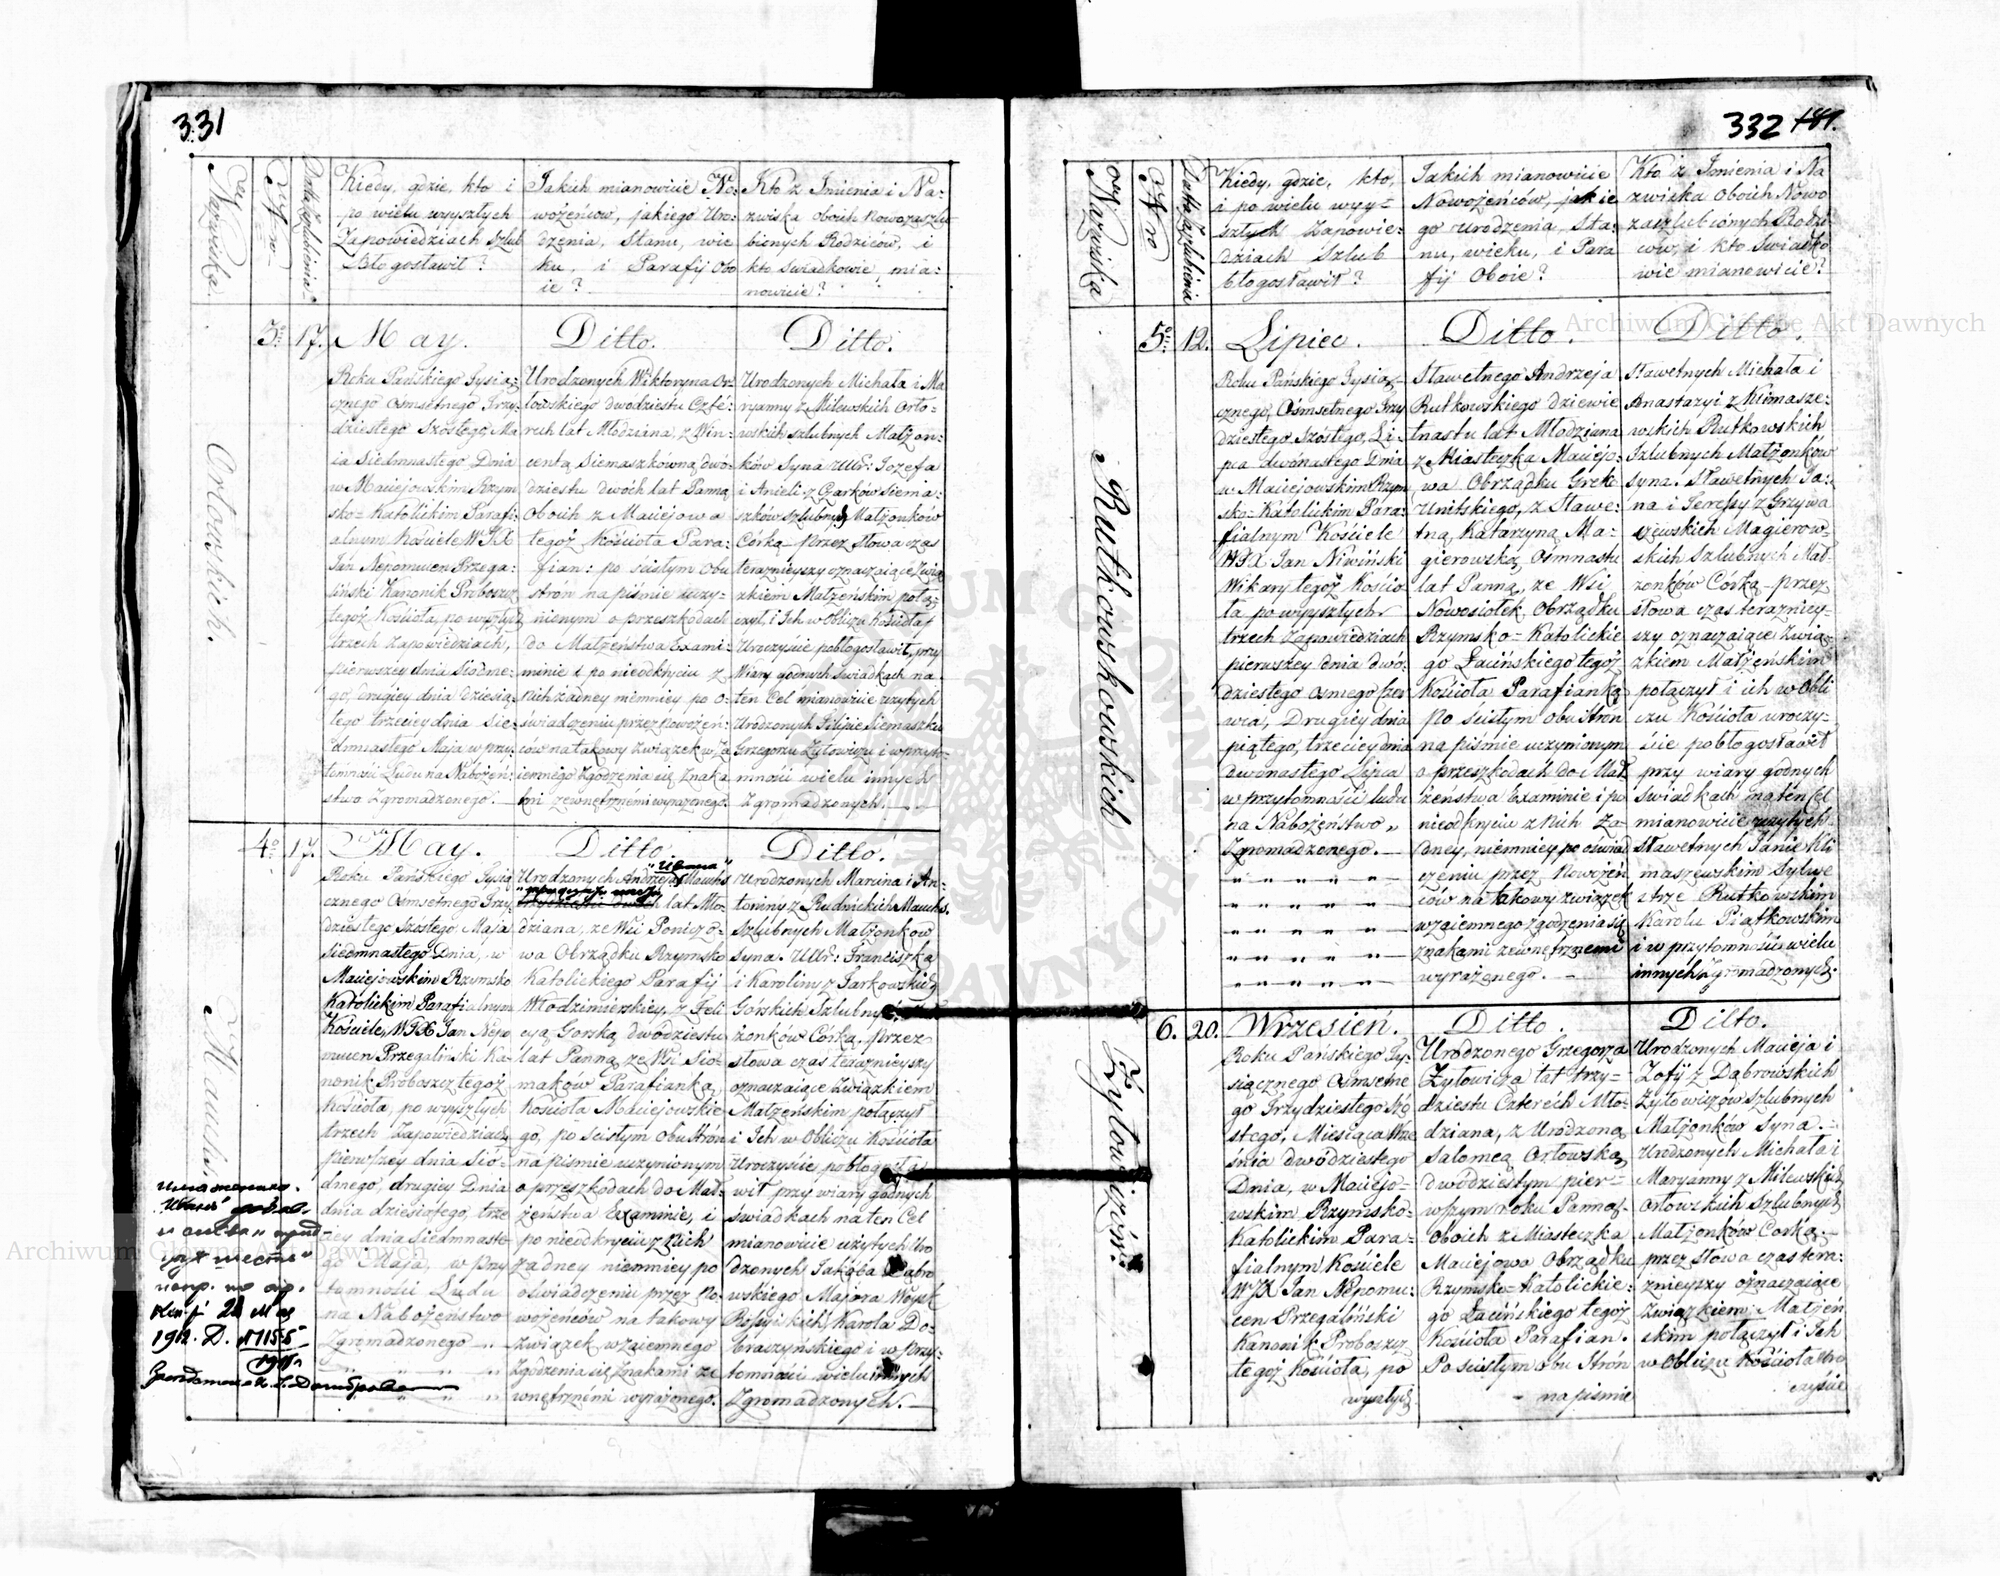 331
Nazwiska.
Nro
Datta Zaślubienia
Kiedy, gdzie, kto i
po wielu wyszłych
Zapowiedziach Szlub
Błogosławił?
Jakich mianowicie No-
wożeńców, jakiego Uro-
dzenia, Stanu, wie
ku, i Parafij Obo
ie?
Kto z Imienia i Na-
zwiska oboich Nowozaszlu
bionych Rodziców, i
kto Świadkowie, mia-
nowicie?
Orłowskich.
3o 17.
May.
Roku Pańskiego Tysią
cznego Ośmsetnego Trzy-
dziestego Szóstego, Ma
ia Siedmnastego Dnia
w Maciejowskim Rzym
sko-Katolickim Parafi-
alnym Kościele WJX
Jan Nepomucen Przega-
liński Kanonik Proboszcz
tegoż Kościoła, po wyszłych
trzech Zapowiedziach,
pierwszey dnia Siódme-
go, drugiey dnia dziesią
tego trzeciey dnia Sie-
dmnastego Maja w przy-
tomności Ludu na Nabożeń-
stwo Zgromadzonego.
Ditto.
Urodzonych Wiktoryna Or-
łowskiego dwodziestu Czté-
rech lat Młodziana, z Win-
centą Siemaszkówną dwó-
dziestu dwóch lat Panną
Oboich z Maciejowa
tegoż Kościoła Para-
fian: po ścisłym obu
strón na piśmie uczy-
nionym o przeszkodach
do Małżeństwa Exami-
minie i po nieodkryciu z
nich żadney niemniey po o-
świadczeniu przez Nowożeń-
ców na takowy związek w Za
iemnego Zgodzenia się Znaka
mi zewnętrznémi wyrażonego.
Ditto.
Urodzonych Michała i Ma
ryanny z Milewskich Orło-
wskich szlubnych Małżon-
ków Syna, z Ur: Jozefa
i Anieli z Czarków Siema-
szków szlubnych Małżonków
Córką – przez słowa czas
teraznieyszy oznaczaiące, Zwią
zkiem Małżeńskim połą-
czył, i Ich w Obliczu Kościoła
Uroczyście pobłogosławił, przy
Wiary godnych Świadkach na
ten Cel mianowicie użytych
Urodzonych Filipie Siemaszku
Grzegorzu Żytowiczu i w przyto-
mności wielu innych
Zgromadzonych.
4o 17.
May.
Roku Pańskiego Tysią
cznego Ośmsetnego Trzy-
dziestego Szóstego Maja
Siedmnastego Dnia, w
Maciejowskim Rzymsko
Katolickim Parafialnym
Kościele, WJX Jan Nepo
mucen Przegaliński Ka-
nonik Proboszcz tegoż
Kościoła, po wyszłych
trzech Zapowiedziach
pierwszey dnia Sió-
dmego, drugiey Dnia
dnia dziesiątego, trze
ciey dnia Siedmnaste
go Maja, w przy
tomności Ludu
na Nabożeństwo
Zgromadzonego
Ditto.
Urodzonych Andrzeja
lat Mło-
dziana, ze Wsi Poniczo-
wa Obrządku Rzymsko
Katolickiego Parafij
Włodzimierskiey, z Feli
cyą Gorską dwodziestu
lat Panną, ze Wsi Sio-
maków Parafianką,
Kościoła Maciejowskie
go, po ścisłym Obu Strón
na piśmie uczynionym
o przeszkodach do Mał-
żeństwa Examinie, i
po nieodkryciu z nich
żadney niemniey po
oświadczeniu przez No-
wożeńców na takowy
związek wzaiemnego
Zgodzenia się Znakami ze
wnętrznémi wyrażonego.
Ditto.
Urodzonych Marcina i An-
toniny z Rudnickich
Szlubnych Małżonków
Syna. z Ur: Franciszka
i Karoliny z Jarkowskich
Górskich Szlubnych
żonków Córką. przez
słowa czas teraznieyszy
oznaczaiące Związkiem
Małżeńskim połączył
i Ich w Obliczu Kościoła
Uroczyście pobłogosła
wił przy wiary godnych
świadkach na ten Cel
mianowicie użytych Uro
dzonych Jakóba Dąbro
wskiego Majora Woysk
Rossyiskich, Karola Do-
braczyńskiego i w przy-
tomności wielu innych
Zgromadzonych.
1912. Д. №1155
332 181.
Nazwiska
Nro
Datta Zaślubienia
Kiedy, gdzie, kto,
i po wielu wy-
szłych Zapowie-
dziach Szlub
błogosławił?
Jakich mianowicie
Nowożeńców, jakie
go urodzenia, Sta-
nu, wieku, i Para
fij Oboie?
Kto z Imienia i Na
zwiska Oboich Nowo
zaszlubionych Rodzi-
ców, i kto Świadko
wie mianowicie?
Rutkowskich
5o 12.
Lipiec.
Roku Pańskiego Tysią-
cznego, Ośmsetnego Trzy
dziestego Szóstego, Li-
pca dwónastego Dnia
w Maciejowskim Rzym
sko-Katolickim Para-
fialnym Kościele
WJX Jan Niwiński
Wikary tegoż Kościo
ła po wyszłych
trzech Zapowiedziach
pierwszey dnia dwó-
dziestego ósmego Czer
wca, Drugiey dnia
piątego, trzeciey dnia
dwónastego Lipca
w przytomności ludu
na Nabożeństwo
Zgromadzonego.
Ditto.
Sławetnego Andrzeja
Rutkowskiego dziewie
tnastu lat Młodziana
z Miasteczka Maciejo-
wa Obrządku Greko
Unitskiego, z Sławe-
tną Katarzyną Ma-
gierowską Ośmnastu
lat Panną, ze Wsi
Nowosiołek Obrządku
Rzymsko-Katolickie
go Łacińskiego tegoż
Kościoła Parafianką
Po ścisłym obu Strón
na piśmie uczynionym
o przeszkodach do Mał
żeństwa Examinie i po
nieodkryciu z nich Ża
dney, niemniey po oświad
czeniu przez Nowożeń
ców na takowy związek
wzaiemnego Zgodzenia się
Znakami zewnętrznemi
wyrażonego.
Ditto.
Sławetnych Michała i
Anastazyi z Klimasze-
wskich Rutkowskich
Szlubnych Małżonków
syna. Sławetnych Ja-
na i Teressy z Grzywa
czewskich Magierow-
skich Szlubnych Mał-
żonków Córką – przez
słowa czas teraźniey-
szy oznaczaiące Zwią-
zkiem Małżeńskim
połączył i ich w Obli
czu Kościoła uroczy-
ście pobłogosławił
przy wiary godnych
świadkach na ten Cel
mianowicie użytych
Sławetnych Janie Kli
maszewskim Sylwe
strze Rutkowskim
Karolu Piątkowskim
i w przytomności wielu
innych Zgromadzonych.
Żytowiczów.
6. 20.
Wrzesień.
Roku Pańskiego Ty-
siącznego Ośmsetne
go Trzydziestego Szó
stego, Miesiąca Wrze
śnia dwódziestego
Dnia, w Maciejo-
wskim Rzymsko-
Katolickim Para-
fialnym Kościele
WJX Jan Nepomu-
cen Przegaliński
Kanonik Proboszcz
tegoż Kościoła, po
wyszłych
Ditto.
Urodzonego Grzegorza
Żytowicza lat trzy-
dziestu Czterech Mło-
dziana, z Urodzoną
Salomeą Orłowską
dwódziestym pier-
wszym roku Panną,
Oboich z Miasteczka
Maciejowa Obrządku
Rzymsko-Katolickie-
go Łacińskiego tegoż
Kościoła Parafian.
Po ścisłym Obu Strón
na piśmie
Ditto.
Urodzonych Macieja i
Zofij z Dąbrowskich
Żytowiczów Szlubnych
Małżonków Syna.
Urodzonych Michała i
Maryanny z Milewskich
Orłowskich Szlubnych
Małżonków Corką.
przez słowa czas tera-
znieyszy oznaczaiące
Związkiem Małżeń
skim połączył i Ich
w Obliczu Kościoła Uro
czyście
Archiwum Główne Akt Dawnych
Archiwum Główne Akt Dawnych